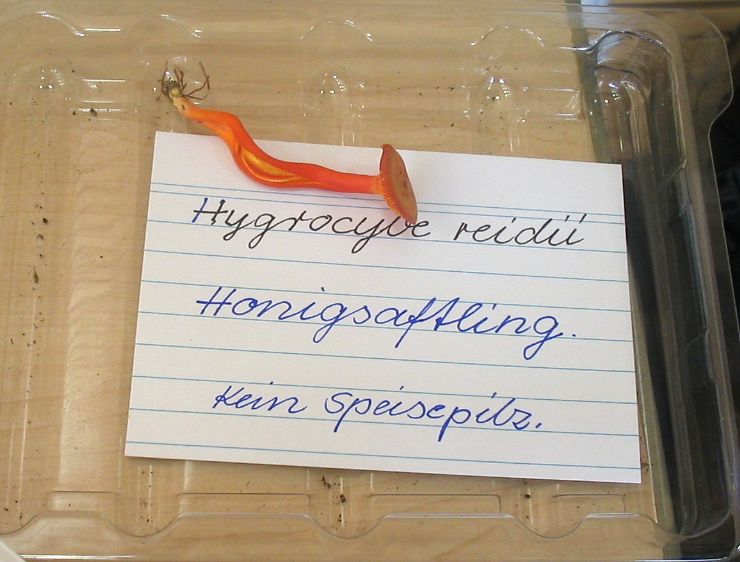 Hygrocybe reidii
Honigsaftling.
Kein Speisepilz.